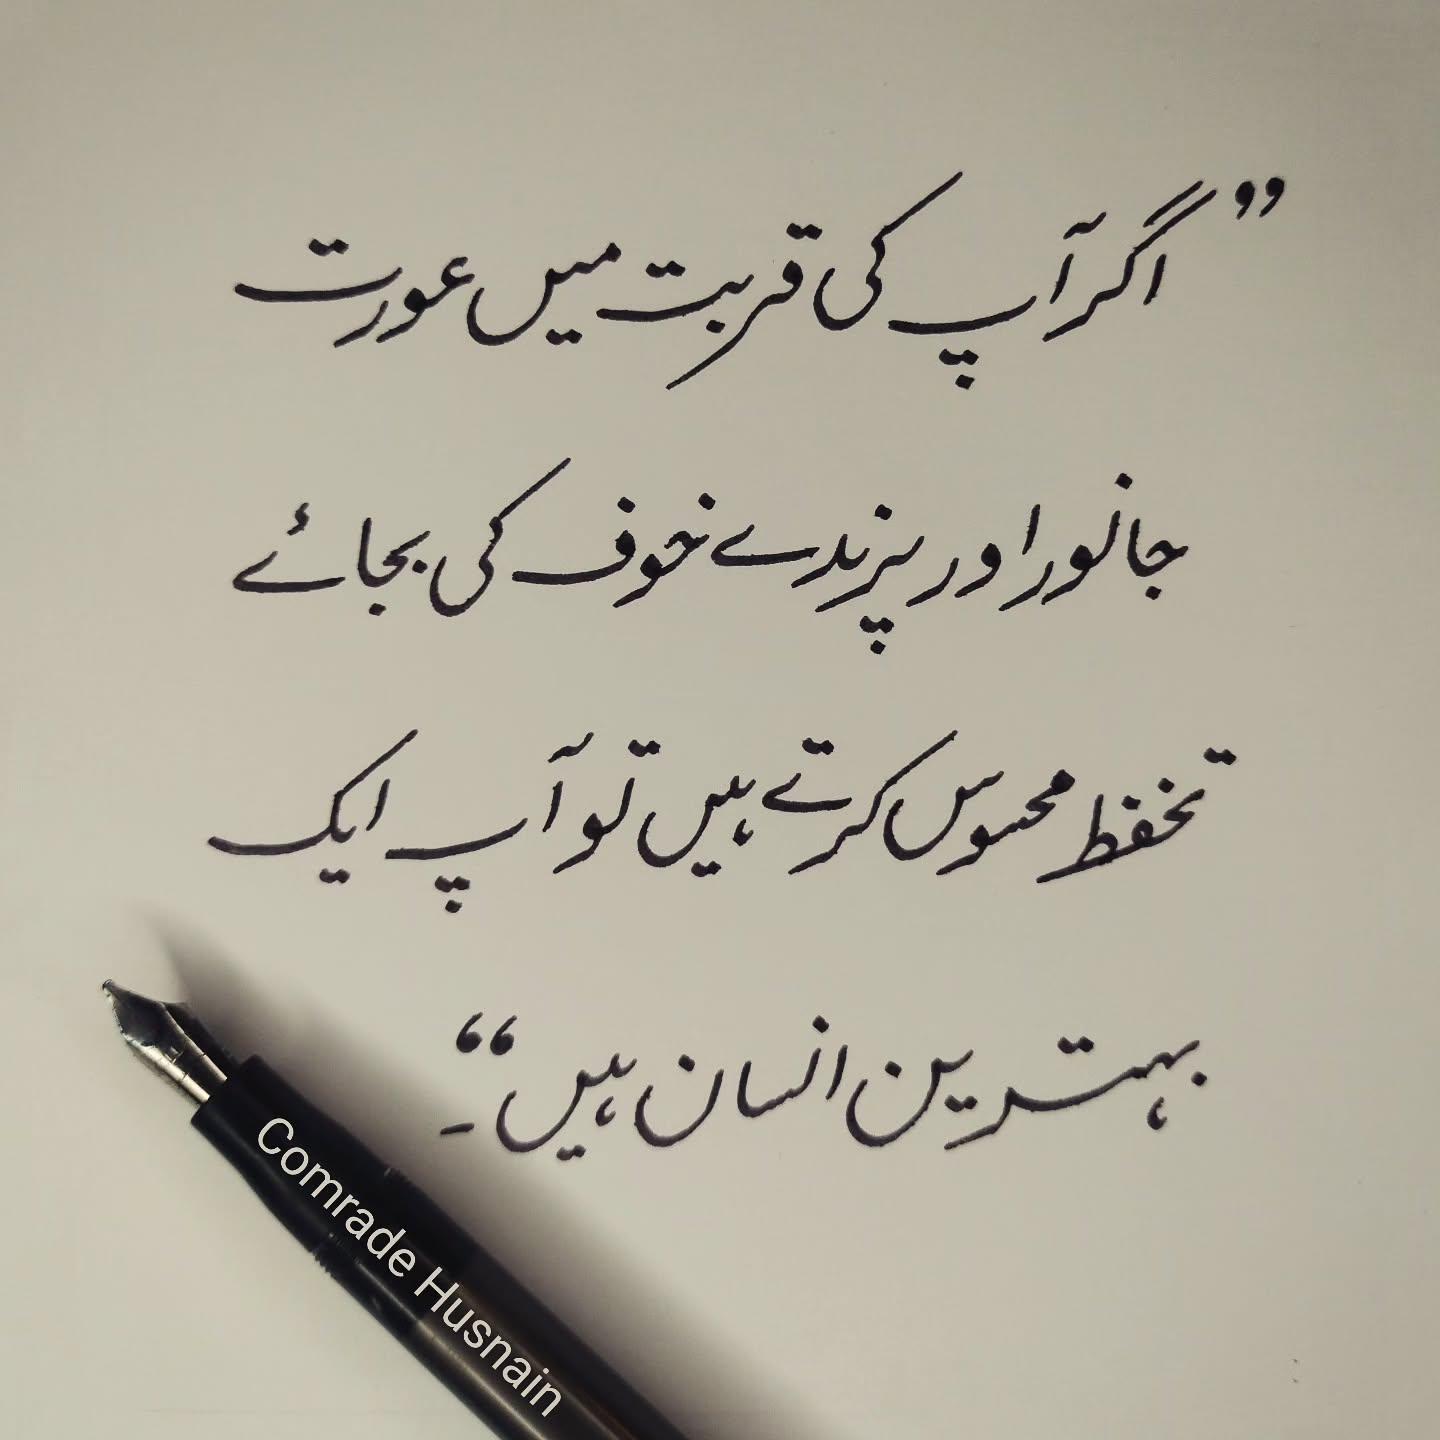 ”اگر آپ کی قربت میں عورت
جانور اور پرندے خوف کی بجائے
تحفظ محسوس کرتے ہیں تو آپ ایک
بہترین انسان ہیں“۔
Comrade Husnain